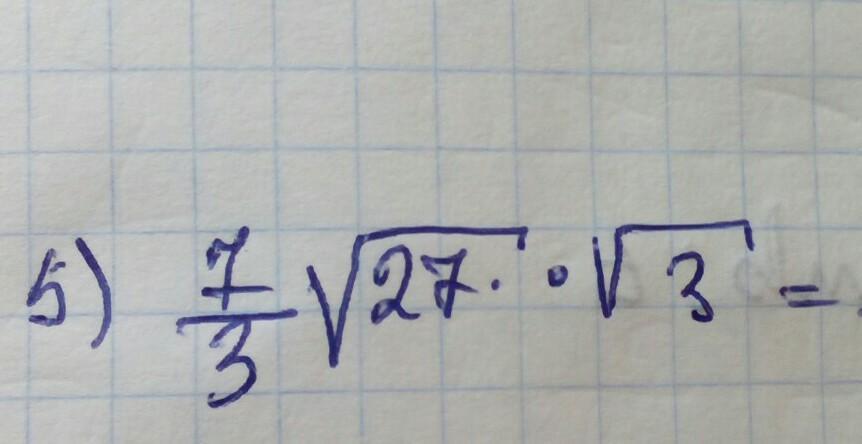 5) 7/3 √27· · √3 =